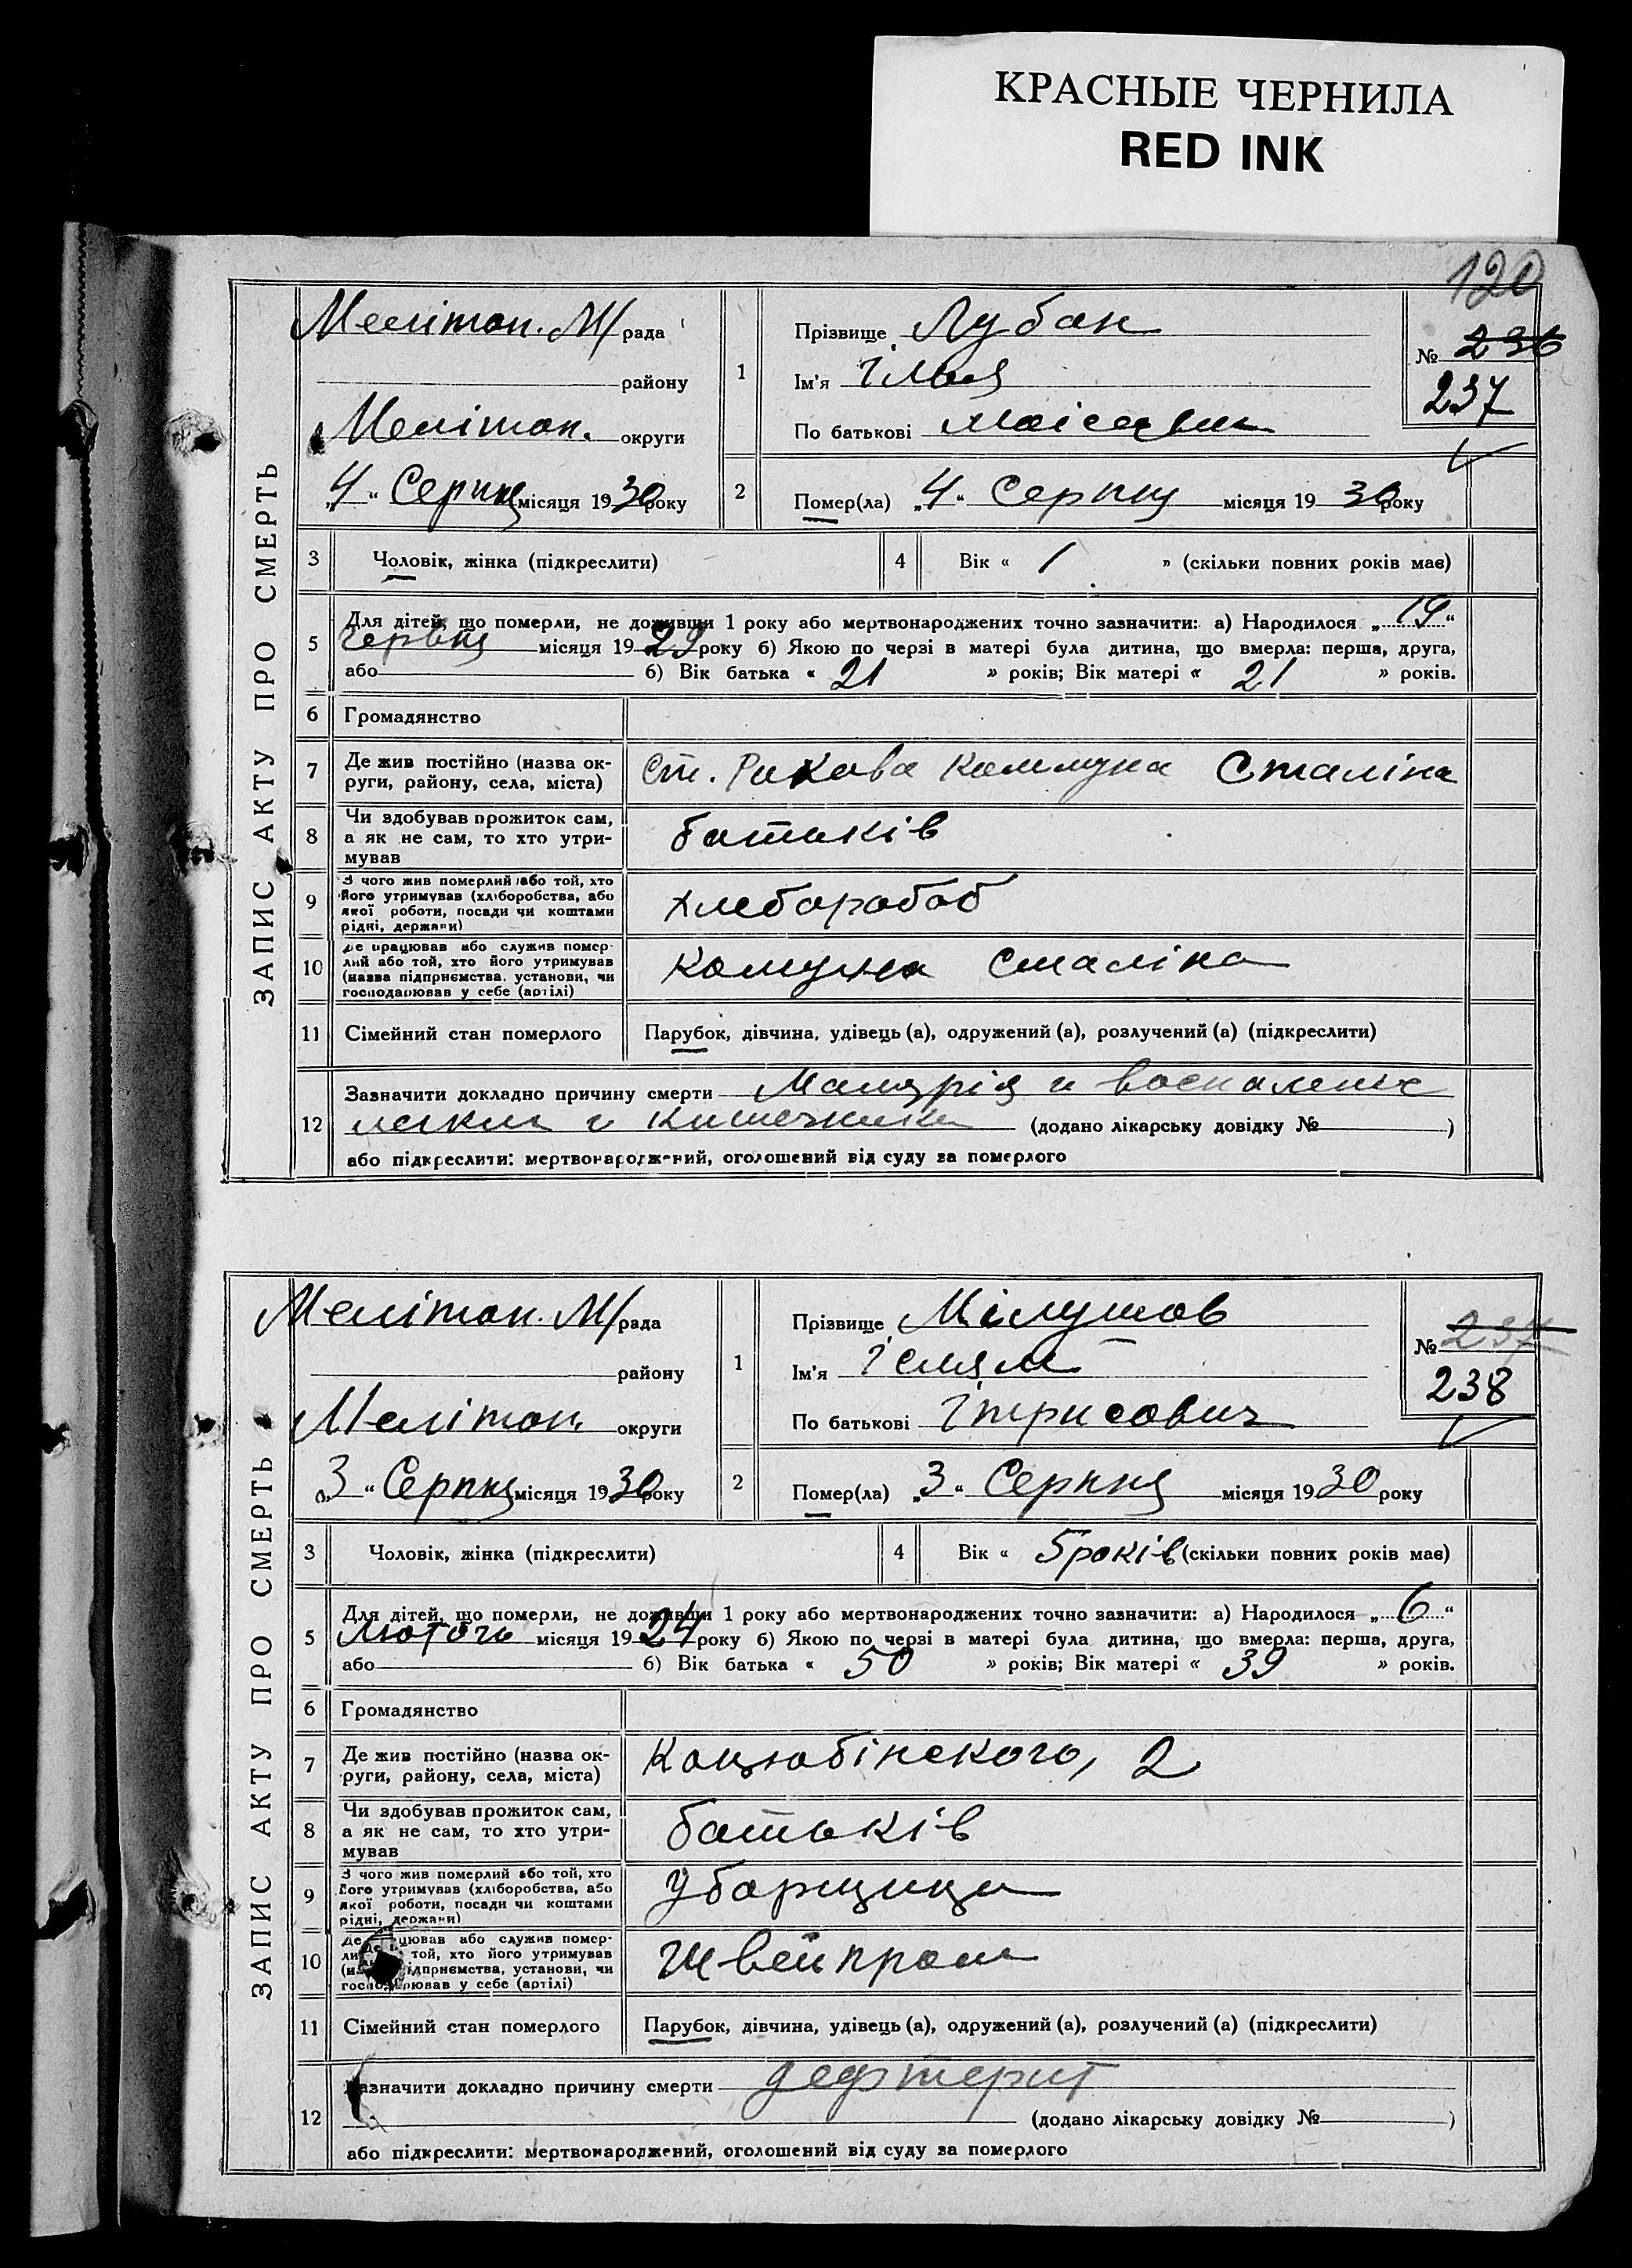 КРАСНЫЕ ЧЕРНИЛА
RED INK
120
ЗАПИС АКТУ ПРО СМЕРТЬ
Меліton. М/рада
району
Меліtоп. округи
„4“ Серпня місяця 1930 року
1
Прізвище Лубан
Ім'я Ілья
По батькові Моісеевич
№ 236
237
2
Помер(ла) „4“ Серпня місяця 1930 року
3 Чоловік, жінка (підкреслити)
4 Вік « 1 » (скільки повних років має)
5 Для дітей, що померли, не доживши 1 року або мертвонароджених точно зазначити: а) Народилося „19“
червня місяця 1929 року б) Якою по черзі в матері була дитина, що вмерла: перша, друга,
або б) Вік батька « 21 » років; Вік матері « 21 » років.
6 Громадянство
7 Де жив постійно (назва округи, району, села, міста) ст. Рикова Коммуна Сталіна
8 Чи здобував прожиток сам, а як не сам, то хто утримував батьків
9 З чого жив померлий або той, хто його утримував (хліборобства, або якої роботи, посади чи коштами рідні, держави) хлебороб
10 Де працював або служив померлий або той, хто його утримував (назва підприємства, установи, чи господарював у себе (артілі) Комуна Сталіна
11 Сімейний стан померлого Парубок, дівчина, удівець (а), одружений (а), розлучений (а) (підкреслити)
12 Зазначити докладно причину смерти Малярія и воспаление
легких и кишечника (додано лікарську довідку № )
або підкреслити: мертвонароджений, оголошений від суду за померлого
ЗАПИС АКТУ ПРО СМЕРТЬ
Меліtоп. М/рада
району
Меліtоп. округи
„3“ Серпня місяця 1930 року
1
Прізвище Мілушов
Ім'я Ісмяил
По батькові Ітрисович
№ 237
238
2
Помер(ла) „3“ Серпня місяця 1930 року
3 Чоловік, жінка (підкреслити)
4 Вік « 5 років (скільки повних років має)
5 Для дітей, що померли, не доживши 1 року або мертвонароджених точно зазначити: а) Народилося „6“
Лютого місяця 1924 року б) Якою по черзі в матері була дитина, що вмерла: перша, друга,
або б) Вік батька « 50 » років; Вік матері « 39 » років.
6 Громадянство
7 Де жив постійно (назва округи, району, села, міста) Коцюбінского, 2
8 Чи здобував прожиток сам, а як не сам, то хто утримував батьків
9 З чого жив померлий або той, хто його утримував (хліборобства, або якої роботи, посади чи коштами рідні, держави) Уборщица
10 Де працював або служив померлий або той, хто його утримував (назва підприємства, установи, чи господарював у себе (артілі) Швейпром
11 Сімейний стан померлого Парубок, дівчина, удівець (а), одружений (а), розлучений (а) (підкреслити)
12 Зазначити докладно причину смерти дефтерит
(додано лікарську довідку № )
або підкреслити: мертвонароджений, оголошений від суду за померлого